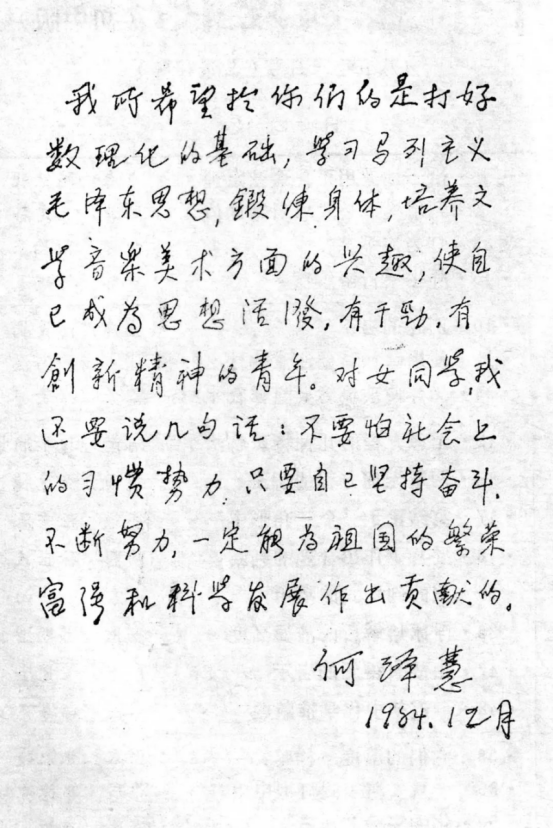 我所希望于你们的是打好
数理化的基础，学习马列主义
毛泽东思想，鍛煉身体，培养文
学音樂美术方面的兴趣，使自
己成为思想活潑，有干劲，有
創新精神的青年。对女同学，我
还要说几句话：不要怕社会上
的习惯势力，只要自己坚持奋斗，
不断努力，一定能为祖国的繁荣
富强和科学发展作出贡献的。
何泽慧
1984.12月